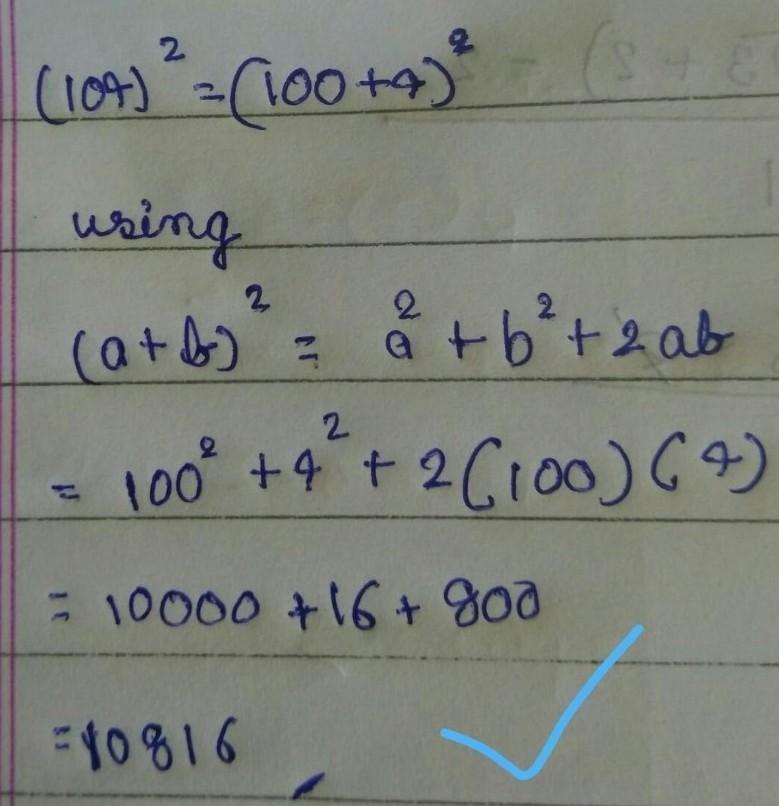 (104)² = (100+4)²
using
(a+b)² = a² + b² + 2ab
= 100² + 4² + 2(100)(4)
= 10000 + 16 + 800
= 10816